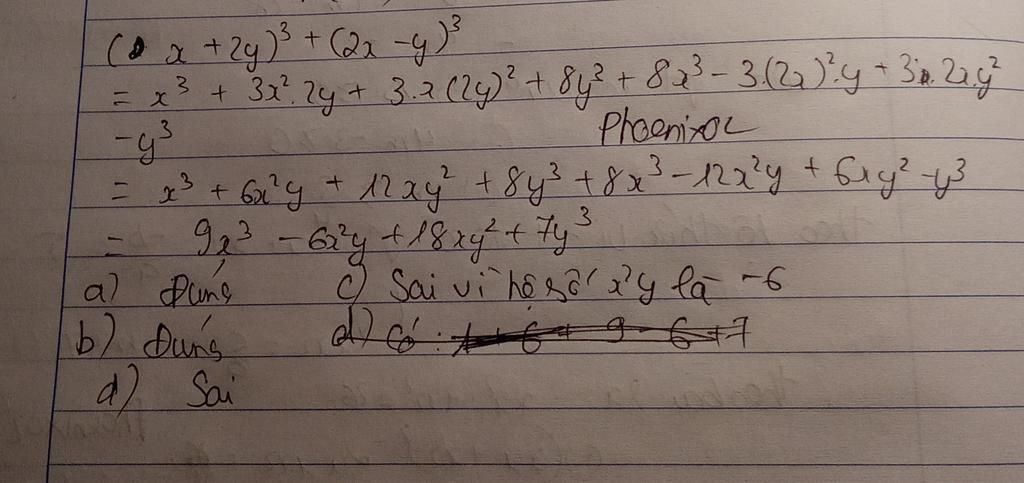 ( x + 2y)³ + (2x - y)³
= x³ + 3x². 2y + 3.x(2y)² + 8y³ + 8x³ - 3.(2x)².y + 3. 2x.y²
- y³
Phoenixoc
= x³ + 6x²y + 12xy² + 8y³ + 8x³ - 12x²y + 6xy² - y³
= 9x³ - 6x²y + 18xy² + 7y³
a) Đúng c) Sai vì hệ số x²y là -6
b) Đúng d) Có:
d) Sai